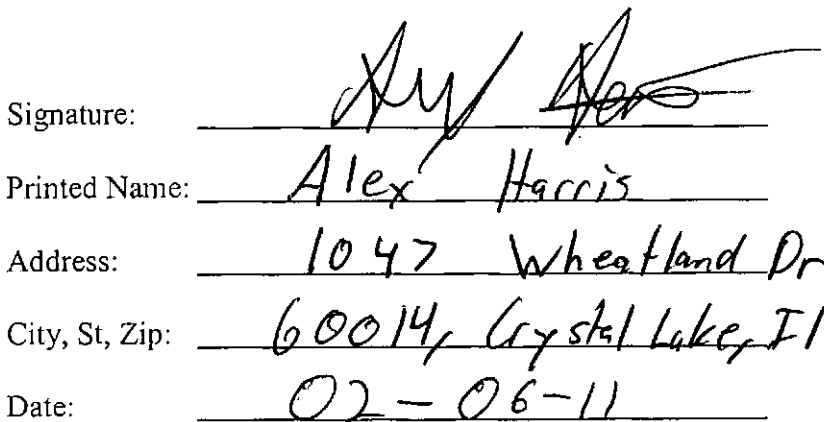 Signature:
Printed Name: Alex Harris
Address: 1047 Wheatland Dr
City, St, Zip: 60014, Crystal Lake, Il
Date: 02-06-11